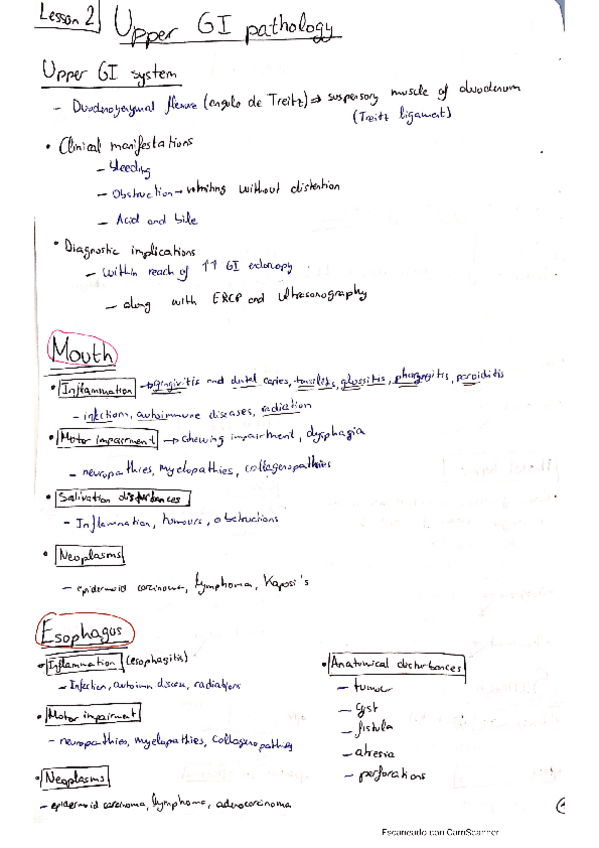 Lesson 2
Upper GI pathology
Upper GI system
- Duodenoyeyunal flexure (angulo de Treitz) ⇒ suspensory muscle of duodenum
(Treitz ligament)
• Clinical manifestations
- bleeding
- Obstruction → vomiting without distention
- Acid and bile
• Diagnostic implications
- Within reach of ↑↑ GI endoscopy
- along with ERCP and ultrasonography
Mouth
• Inflammation → gingivitis and dental caries, tonsilitis, glossitis, pharyngitis, parotiditis
- infections, autoimmune diseases, radiation
• Motor impairment → chewing impairment, dysphagia
- neuropathies, myelopathies, collagenopathies
• Salivation disturbances
- Inflammation, tumours, obstructions
• Neoplasms
- epidermoid carcinoma, lymphoma, Kaposi's
Esophagus
• Inflammation (esophagitis)
- Infection, autoimm disease, radiations
• Motor impairment
- neuropathies, myelopathies, collagenopathies
• Neoplasms
- epidermoid carcinoma, lymphoma, adenocarcinoma
• Anatomical disturbances
- tumor
- cyst
- fistula
- atresia
- perforations
Escaneado con CamScanner